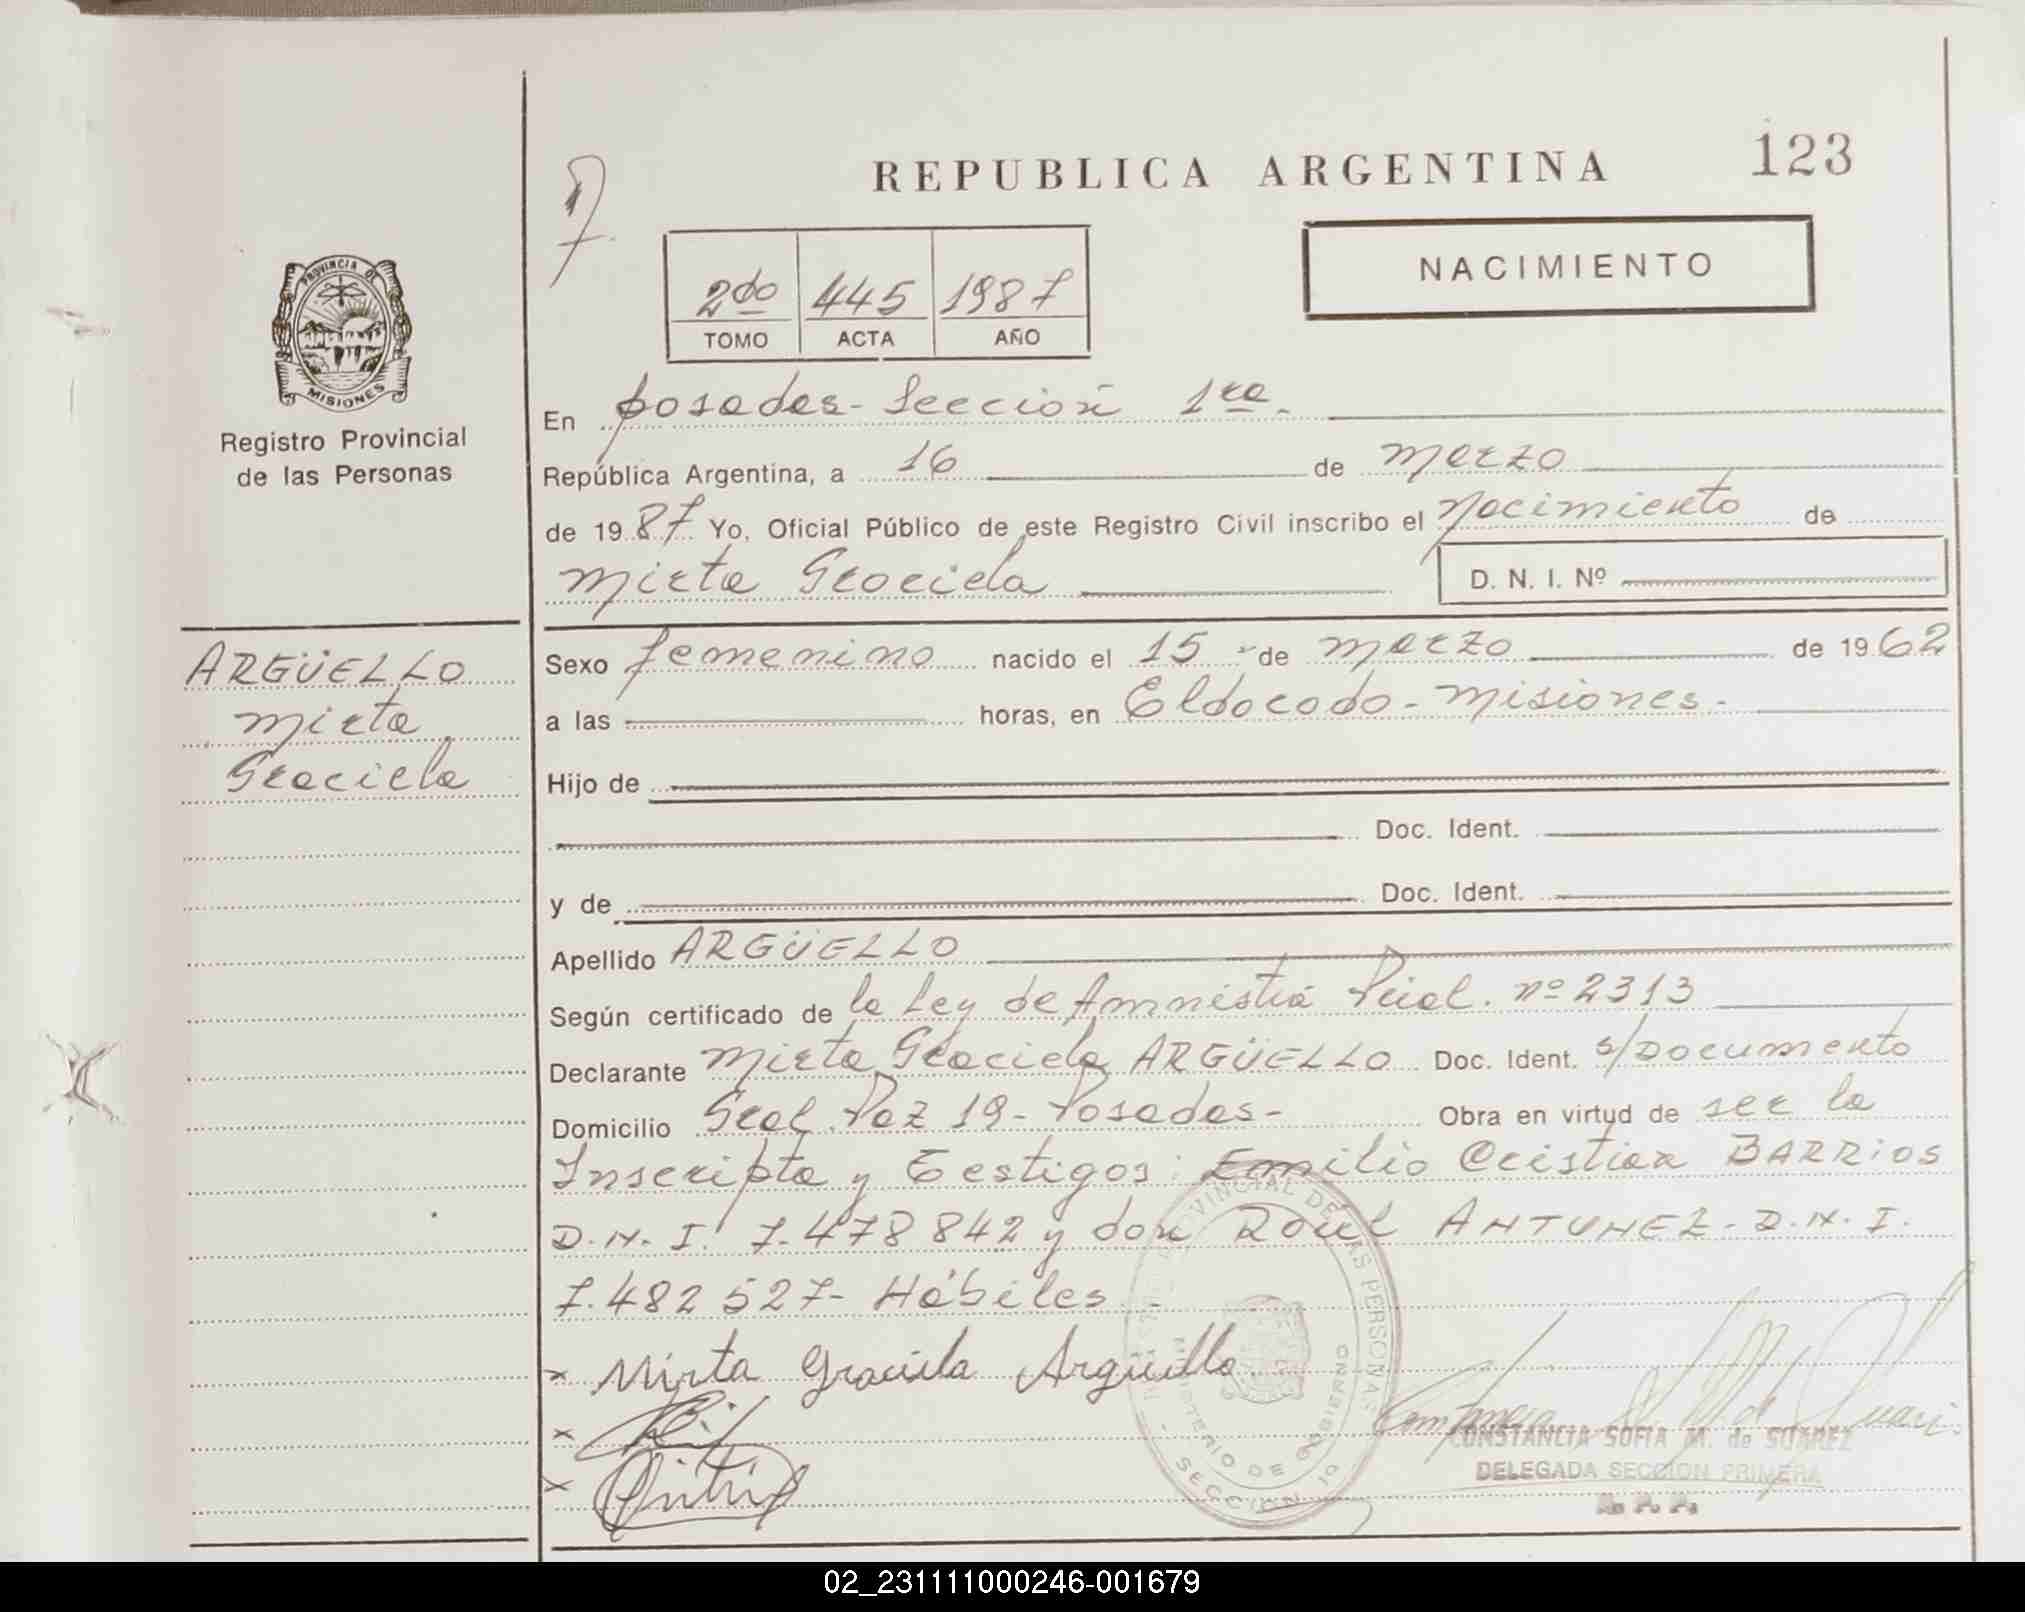 REPUBLICA ARGENTINA
123
NACIMIENTO
2do 445 1987
TOMO ACTA AÑO
PROVINCIA DE
MISIONES
Registro Provincial
de las Personas
En Posadas - Sección 1ra.
República Argentina, a 16 de marzo
de 1987 Yo, Oficial Público de este Registro Civil inscribo el Nacimiento de
Mirta Graciela
D. N. I. Nº
ARGÜELLO
Mirta
Graciela
Sexo femenino nacido el 15 de marzo de 1962
a las horas, en Eldorado - Misiones.
Hijo de
Doc. Ident.
y de Doc. Ident.
Apellido ARGÜELLO
Según certificado de la Ley de Amnistia Pcial. nº 2313
Declarante Mirta Graciela ARGÜELLO Doc. Ident. s/Documento
Domicilio Gral. Paz 19 - Posadas - Obra en virtud de ser la
Inscripta y Testigos: Emilio Cristian BARRIOS
D.N.I. 7.478842 y don Raul ANTUNEZ - D.N.I.
7.482527 - Hábiles.
x Mirta Graciela Arguello
x
x
PROVINCIAL DE LAS PERSONAS
MINISTERIO DE GOBIERNO
SECCION 1a
CONSTANCIA SOFIA M. de SUAREZ
DELEGADA SECCION PRIMERA
R. P. P.
02_231111000246-001679